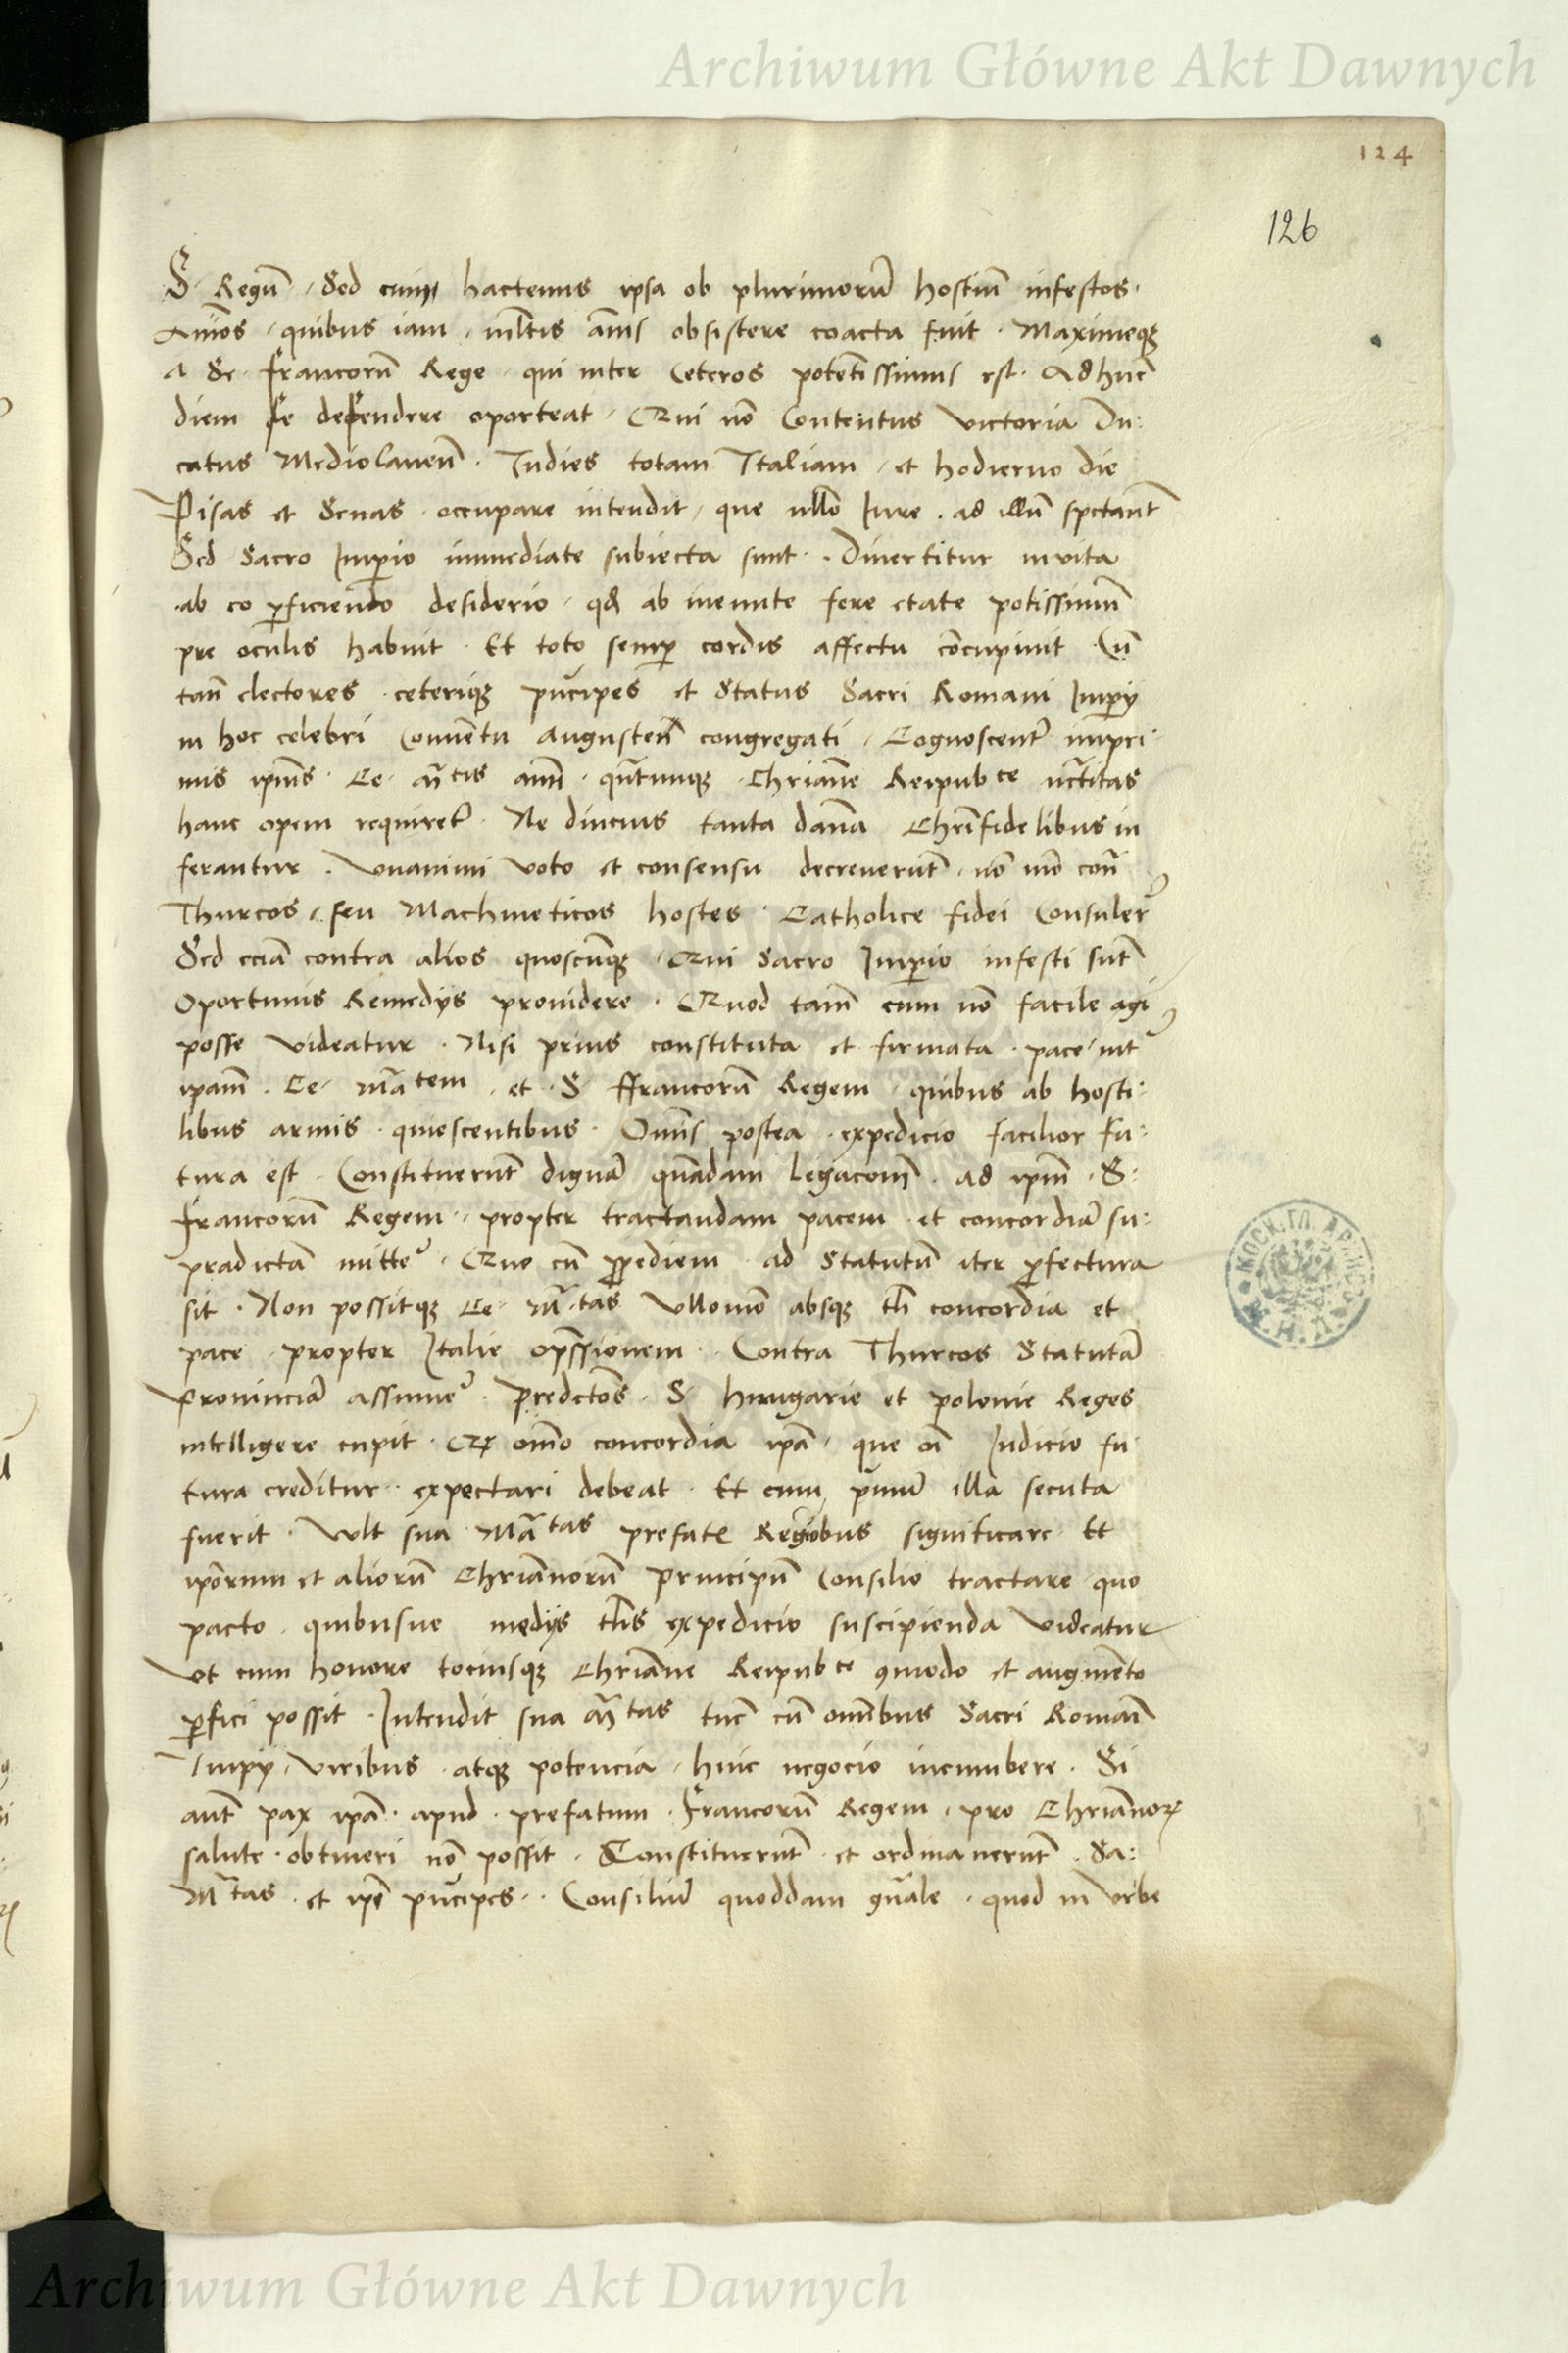 Archiwum Główne Akt Dawnych
124
126
S. Regū . Sed cum hactenus ipsa ob plurimorū hostiū infestos
Aīos . quibus iam . mltis añis obsistere coacta fuit . Maximeqꝫ
a Se. francorū Rege . qui inter Ceteros potētissimus est . Adhuc
diem se defendere oporteat . Qui nō Contentus victoria Du:
catus Mediolaneñ . Indies totam Italiam . et hodierno die
Pisas et Senas . occupare intendit . que nullo Iure . ad illū spectant
Sed Sacro Imꝑio immediate subiecta sunt . Divertitur invita
ab eo ꝑficiendo desiderio . qď ab ineunte fere etate potissimū
pre oculis habuit . Et toto semꝑ cordis affectu concupiuit . Cū
tañ electores . ceteriqꝫ prīcipes et Status Sacri Romani Impery
in hoc celebri Conuentu Augusteñ congregati . Cognoscent impri:
mis ipius . Ce. Mtis aīm . quātumqꝫ Chriane Reipubce nctitas
hanc opem requiret . Ne diucius tanta dāna Chrīfidelibus in
ferantur . Vnanimi voto et consensu decreuerūt . nō mō cont
Thurcos . seu Machmeticos hostes . Catholice fidei Consuler
Sed eciā contra alios quoscūqꝫ . Qui Sacro Imꝑio infesti sūt
Oportunis Remedijs prouidere . Quod tam cum nō facile agi
posse videatur . Nisi prius constituta et firmata . pace int
ipam . Ce. Mātem . et . S. ffrancorū Regem . quibus ab hosti:
libus armis . quiescentibus . Oīnis postea expedicio facilior fu:
tura est . Constituerūt dignā quādam legacōm . ad ipm . S.
Francorū Regem . propter tractandam pacem . et concordiā su:
pradictā mitte . Que cū ꝓpediem . ad Statutū iter ꝓfectura
sit . Non possitqꝫ Ce. Mtas vllomō absqꝫ tli concordia et
pace . propter Italie opssionem . Contra Thurcos Statutā
prouinciā assume . Predctos . S. hungarie et polonie Reges
intelligere cupit . Qꝫ oīno concordia ipā . que oī Iudicio fu
tura creditur . expectari debeat . Et cum primū illa secuta
fuerit . vult sua Mātas prefatꝭ Regibus significare . Et
ipōrum et aliorū Chriānorū Principū Consilio tractare quo
pacto . quibusue medijs tlis expedicio suscipienda videatur
Vt cum honore tociusqꝫ Chriāne Reipubce ꝯmodo et augmēto
ꝑfici possit . Intendit sua Mtas tūc cū omībus Sacri Romaī
Impy . viribus . atqꝫ potencia . huic negocio incumbere . Si
aut pax ipā . apud . prefatum . Francorū Regem . pro Chriānoꝝ
salute . obtineri nō possit . Constituerūt et ordinauerūt . Sa:
Mtas . et ipī prīcipes . Consiliū quoddam gnāle . quod in vrbe
Archiwum Główne Akt Dawnych